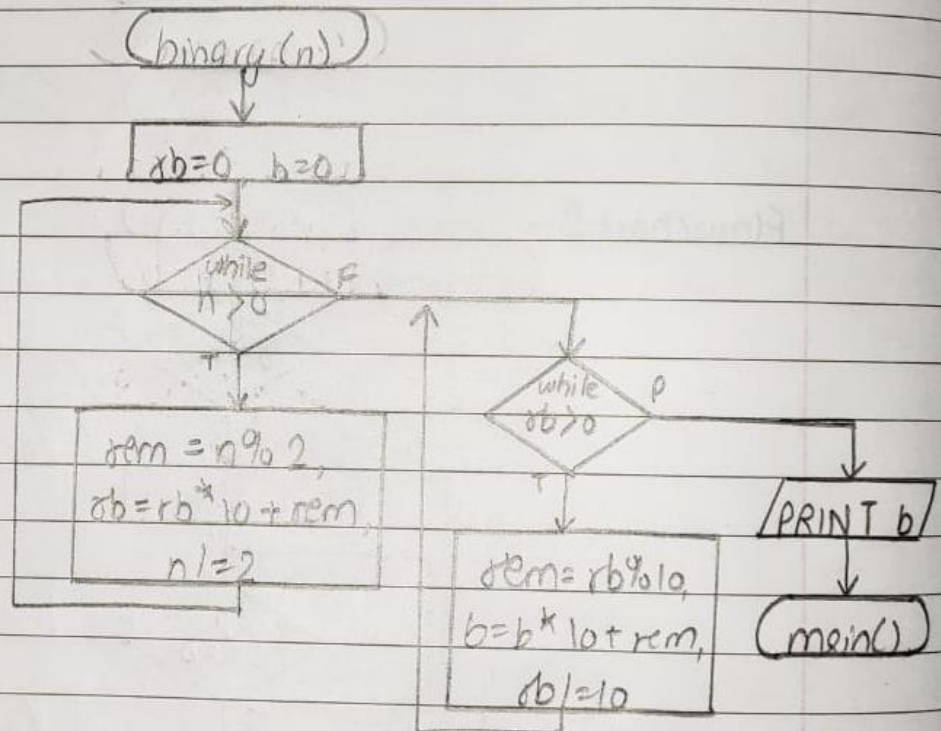 binary(n)
rb=0 b=0
while
n>0
F
T
rem = n%2,
rb=rb*10+rem,
n/=2
while
rb>0
F
T
rem=rb%10,
b=b*10+rem,
rb/=10
PRINT b
main()